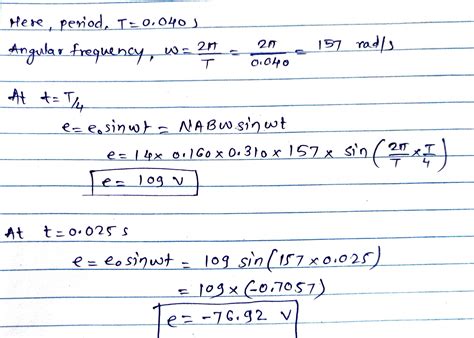 Here, period, T=0.040 s
Angular frequency, ω = 2π/T = 2π/0.040 = 157 rad/s
At t=T/4
e=e₀sinωt = NABω sinωt
e=14× 0.160×0.310×157× sin(2π/T × T/4)
e= 109 V
At t=0.025 s
e=e₀sinωt = 109 sin(157×0.025)
= 109×(-0.7057)
e=-76.92 V